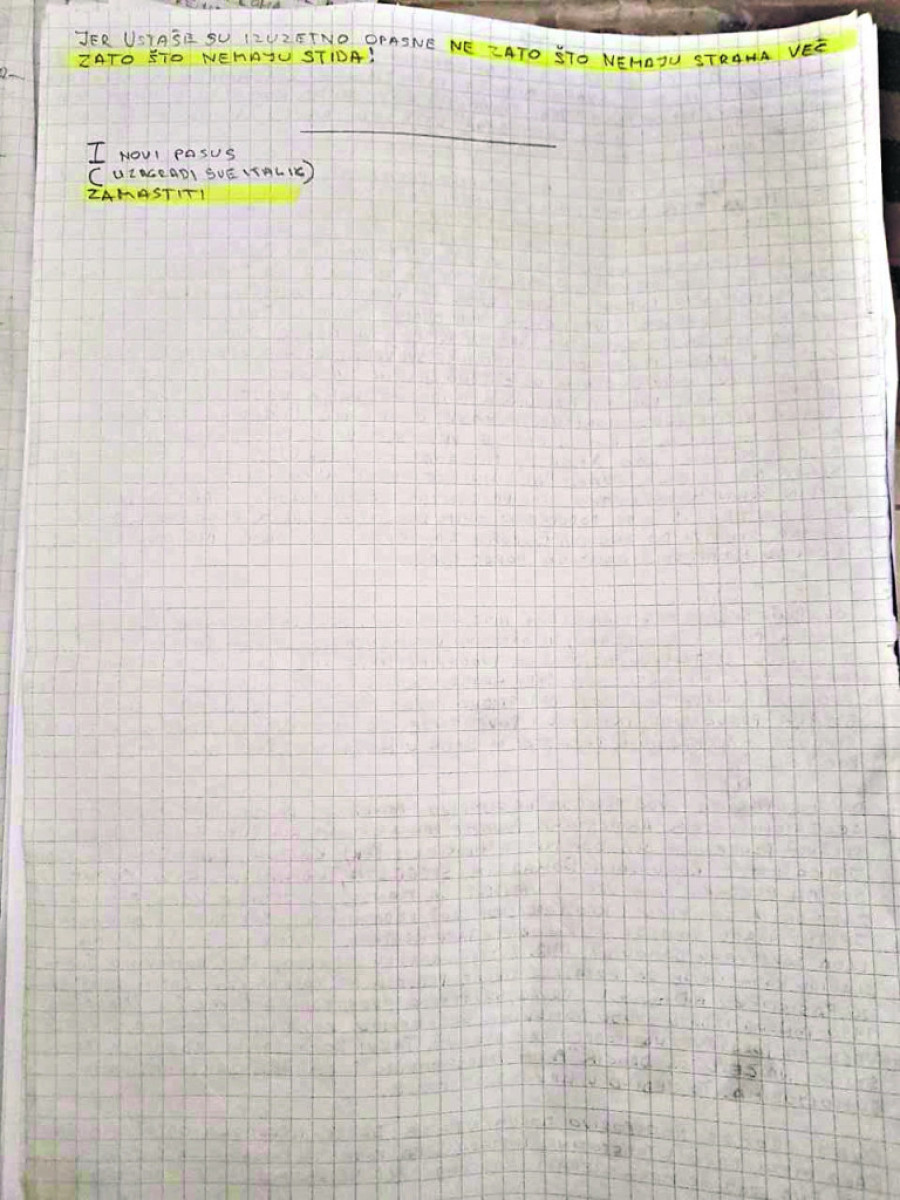 JER USTAŠE SU IZUZETNO OPASNE NE ZATO ŠTO NEMAJU STRAHA VEČ
ZATO ŠTO NEMAJU STIDA!
I NOVI PASUS
( U ZAGRADI SVE ITALIK)
ZAMASTITI